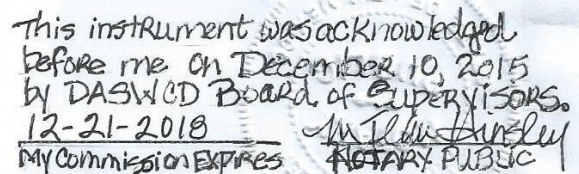 This instrument was acknowledged
before me on December 10, 2015
by DASWCD Board of Supervisors.
12-21-2018 Hinsley
My Commission Expires NOTARY PUBLIC